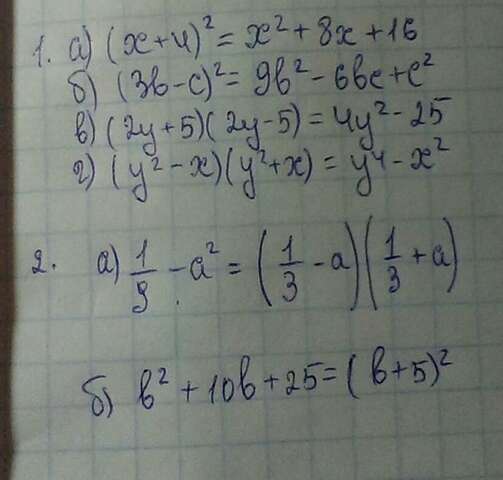 1. а) (x+4)² = x² + 8x + 16
б) (3b-c)² = 9b² - 6bc + c²
в) (2y+5)(2y-5) = 4y² - 25
г) (y² - x)(y²+x) = y⁴ - x²
2. а) 1/9 - a² = (1/3 - a)(1/3 + a)
б) b² + 10b + 25 = (b+5)²